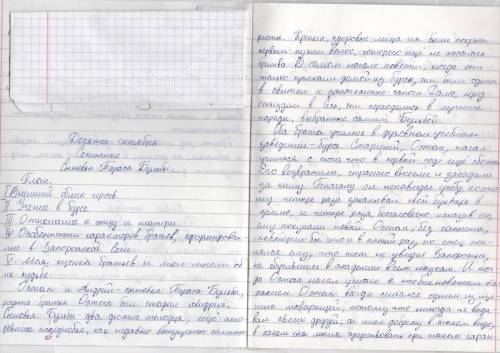 Десятое октября
Сочинение
Сыновья Тараса Бульбы.
План.
I Внешний облик героев.
II Учение в бурсе
III Отношение к отцу и матери
IV Особенности характеров братьев, сформировавшие
в Запорожской Сечи
V Моя оценка братьев и
Остап и Андрей - сыновья Тараса Бульбы,
родные братья. Остап был старше Андрея.
Сыновья Бульбы два дюжие молодца, ещё смо-
тревшие исподлобья, как недавно выпущенные семина-
ристы. Крепкие, здоровые лица их были покрыты
первым пухом волос, которого ещё не касалась
бритва. В самом начале повести, когда они
только приехали домой из бурсы, они были одеты
в свитки и запачканные сапоги. Далее, перед
отъездом в Сечь, они переоделись в лучшие
наряды, выбранные самим Бульбой.
Оба брата учились в духовном учебном
заведении - бурсе. Старший, Остап, начал
учиться с того, что в первый год ещё сбежал.
Его возвратили, страшно высекли и засадили
за книгу. Поначалу он ненавидел учёбу, поэтому
четыре раза закапывал свой букварь в
землю, и четыре раза, наказав его,
ему покупали новый. Остап, без сомнения,
повторил бы это и в пятый раз, но отец
ему, что тот не увидит Запорожья,
не обучившись в академии всем наукам. И тог-
да Остап начал учиться с необыкновенным ста-
ранием. Остап всегда считался одним из луч-
ших товарищей, потому что никогда не выда-
вал своих друзей, он имел доброту в таком виде,
в каком она могла существовать при таком харак-